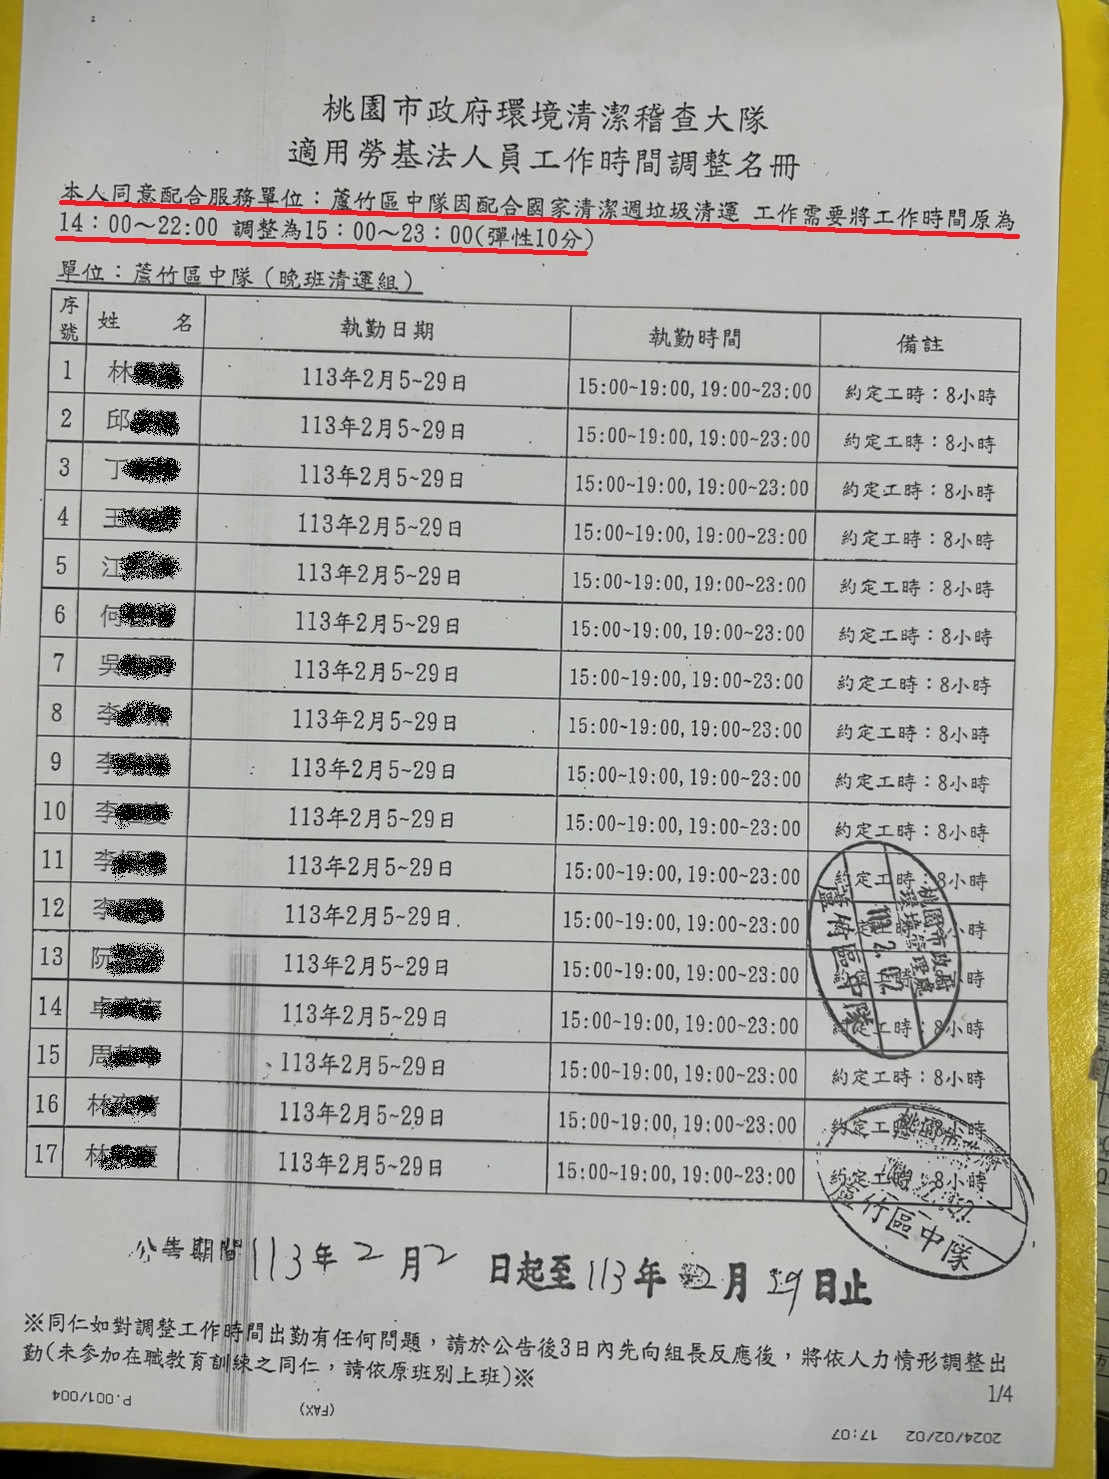 桃園市政府環境清潔稽查大隊
適用勞基法人員工作時間調整名冊
本人同意配合服務單位：蘆竹區中隊因配合國家清潔週垃圾清運 工作需要將工作時間原為
14：00～22:00 調整為15：00～23：00(彈性10分)
單位：蘆竹區中隊（晚班清運組）
序號 姓 名 執勤日期 執勤時間 備註
1 林 113年2月5~29日 15:00~19:00,19:00~23:00 約定工時：8小時
2 邱 113年2月5~29日 15:00~19:00,19:00~23:00 約定工時：8小時
3 丁 113年2月5~29日 15:00~19:00,19:00~23:00 約定工時：8小時
4 王 113年2月5~29日 15:00~19:00,19:00~23:00 約定工時：8小時
5 江 113年2月5~29日 15:00~19:00,19:00~23:00 約定工時：8小時
6 何 113年2月5~29日 15:00~19:00,19:00~23:00 約定工時：8小時
7 吳 113年2月5~29日 15:00~19:00,19:00~23:00 約定工時：8小時
8 李 113年2月5~29日 15:00~19:00,19:00~23:00 約定工時：8小時
9 李 113年2月5~29日 15:00~19:00,19:00~23:00 約定工時：8小時
10 李 113年2月5~29日 15:00~19:00,19:00~23:00 約定工時：8小時
11 李 113年2月5~29日 15:00~19:00,19:00~23:00 約定工時：8小時
12 李 113年2月5~29日 15:00~19:00,19:00~23:00 小時
13 阮 113年2月5~29日 15:00~19:00,19:00~23:00 時
14 卓 113年2月5~29日 15:00~19:00,19:00~23:00 約定工時：8小時
15 周 113年2月5~29日 15:00~19:00,19:00~23:00 約定工時：8小時
16 林 113年2月5~29日 15:00~19:00,19:00~23:00 約定工 小時
17 林 113年2月5~29日 15:00~19:00,19:00~23:00 約定工時：8小時
桃園市政府
環境管理處
113. 2. 02
蘆竹區中隊
桃園市
蘆竹區中隊
公告期間113年2月2日起至113年2月29日止
※同仁如對調整工作時間出勤有任何問題，請於公告後3日內先向組長反應後，將依人力情形調整出
勤(未參加在職教育訓練之同仁，請依原班別上班)※
1/4
2024/02/02 17:07
(FAX)
P.001/004